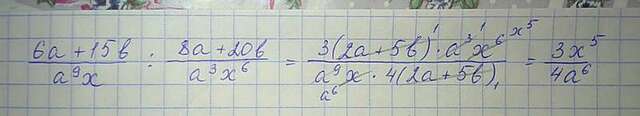 (6a+15b)/(a⁹x) : (8a+20b)/(a³x⁶) = (3(2a+5b)¹·a³¹x⁶ x⁵)/(a⁹x·4(2a+5b)₁ a⁶) = 3x⁵/4a⁶